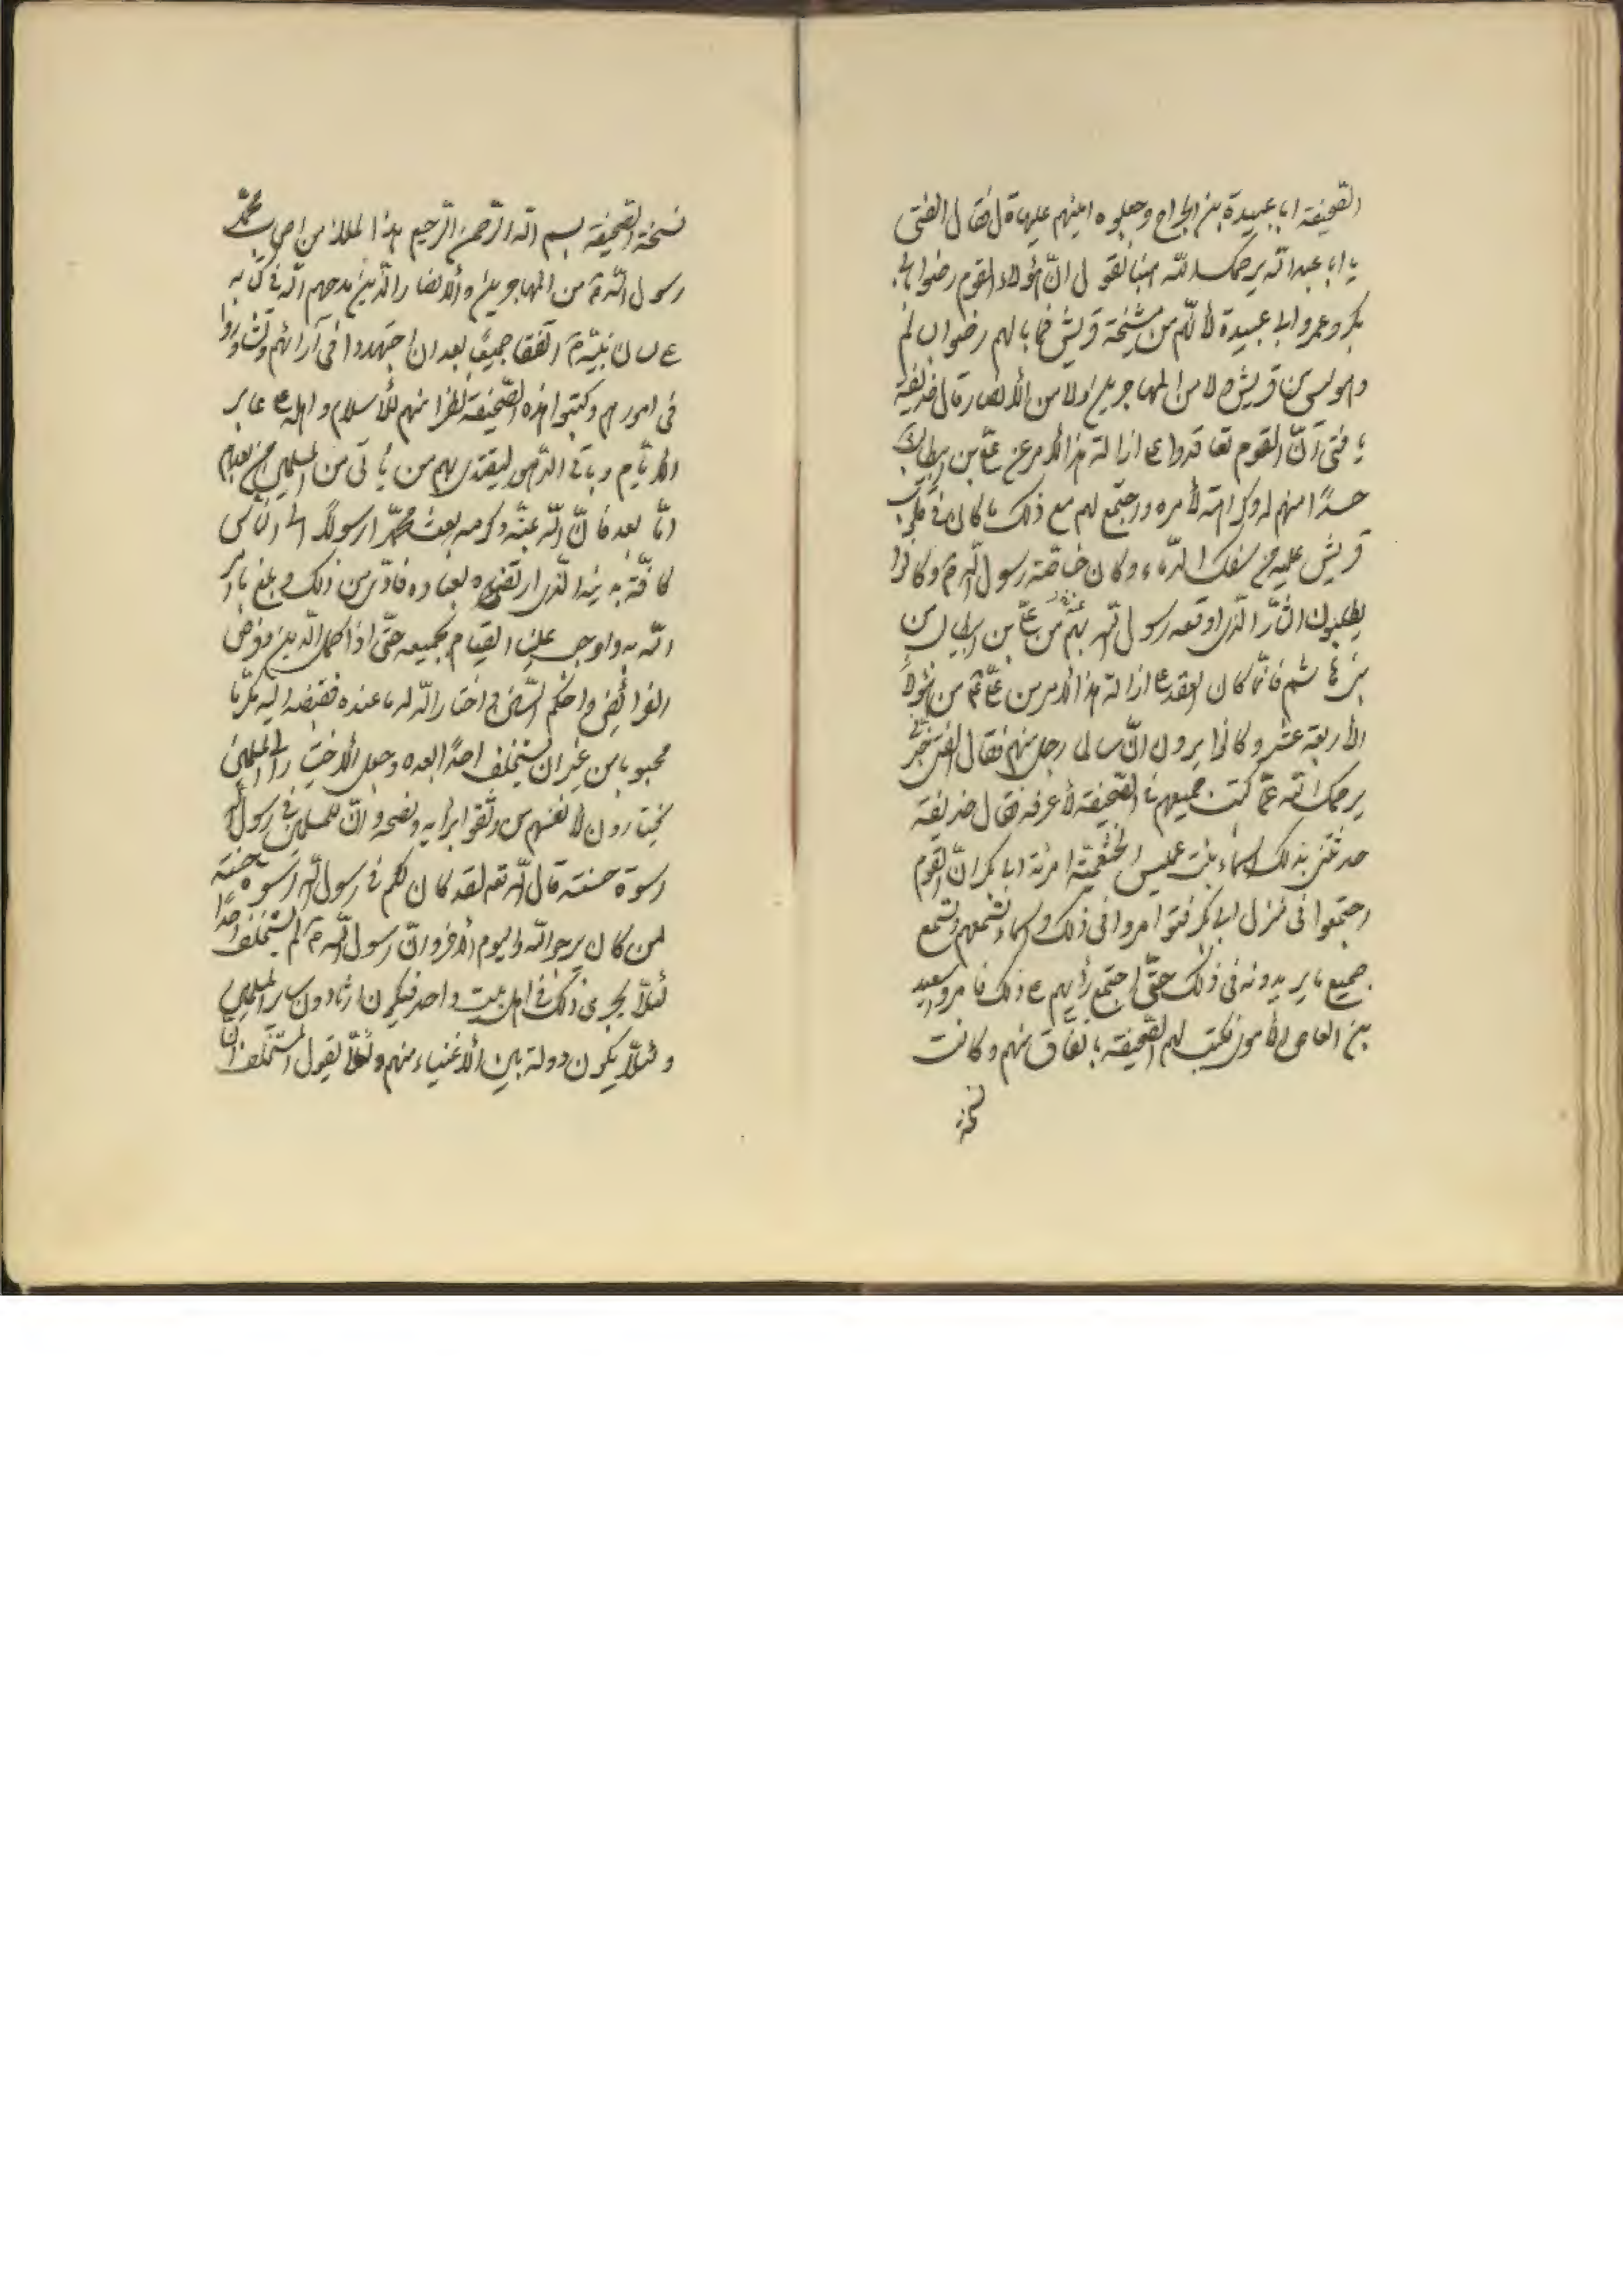 الصحيفة ابا عبيدة بن الجراح وجعلوه امينهم عليها قال فقال الفتى
يا ابا عبد الله يرحمك الله هبنا نقول ان هؤلاء القوم رضوا بابى
بكر وعمر وابى عبيدة لأنهم من مشيخة قريش فما بالهم رضوا بسالم
وهو ليس من قريش ولا من المهاجرين ولا من الأنصار قال حذيفة
يا فتى انّ القوم تعاقدوا على ازالة هذا الأمر عن علىّ بن ابيطالب
حسدًا منهم له وكراهته لأمره واجتمع لهم مع ذلك ما كان فى قلوب
قريش عليه من سفك الدّماء وكان خاصّة رسول الله ص وكانوا
يطلبون الثأر الذى اوقعه رسول الله بهم من علىّ من بين
بنى هاشم فانّما كان العقد على ازالة هذا الأمر من علىّ ع من هؤلاء
الأربعة عشر وكانوا يرون انّ سالما رجل منهم فقال الفتى فخبّرنى
يرحمك الله عمّا كتب جميعهم فى الصّحيفة لأعرفه فقال حذيفة
حدثتنى بذلك اسماء بنت عميس الخثعميّة امرئة ابا بكر انّ القوم
اجتمعوا فى منزل ابى بكر فتوامروا فى ذلك واسماء تسمعهم وتسمع
جميع ما يريدونه فى ذلك حتّى اجتمع رأيهم على ذلك فامروا سعيد
بن العاص الأموى فكتب لهم الصّحيفة باتفاق منهم وكانت
نسخة
نسخة الصّحيفة بسم الله الرّحمن الرّحيم هذا ما اتفق الملاء من اصحاب محمّد
رسول الله ص من المهاجرين والأنصار الّذين مدحهم الله فى كتابه
على لسان نبيّه ص اتّفقا جميعًا بعد ان اجتهدوا فى آرائهم وتشاوروا
فى امورهم وكتبوا هذه الصّحيفة نظرا منهم للأسلام واهله على غابر
الأيّام وباقى الدّهور ليقتدى بهم من يأتى من المسلمين من بعدهم
امّا بعد فانّ الله بمنّه وكرمه بعث محمّدا رسولًا الى النّاس
كافّة بدينه الّذى ارتضيه لعباده فادّى من ذلك وبلغ ما امر
الله به واوجب علينا القيام بجميعه حتّى اذا اكمل الّدين وفرض
الفرائض واحكم السّنن واختار الله له ما عنده فقبضه اليه مكرّما
محبوبا من غير ان يستخلف احدًا بعده وجعل الأختيار الى المسلمين
يختارون لأنفسهم من وثقوا برايه ونصحه وانّ للمسلمين فى رسول الله
اسوة حسنة قال الله تعـ لقد كان لكم فى رسول الله اسوة حسنة
لمن كان يرجوا الله واليوم الأخر وانّ رسول الله ص لم يستخلف احدًا
لئلاّ يجرى ذلك فى اهل بيت واحد فيكون ارثا دون ساير المسلمين
ولئلاّ يكون دولة بين الأغنياء منهم ولئلاّ يقول المستخلف انّ